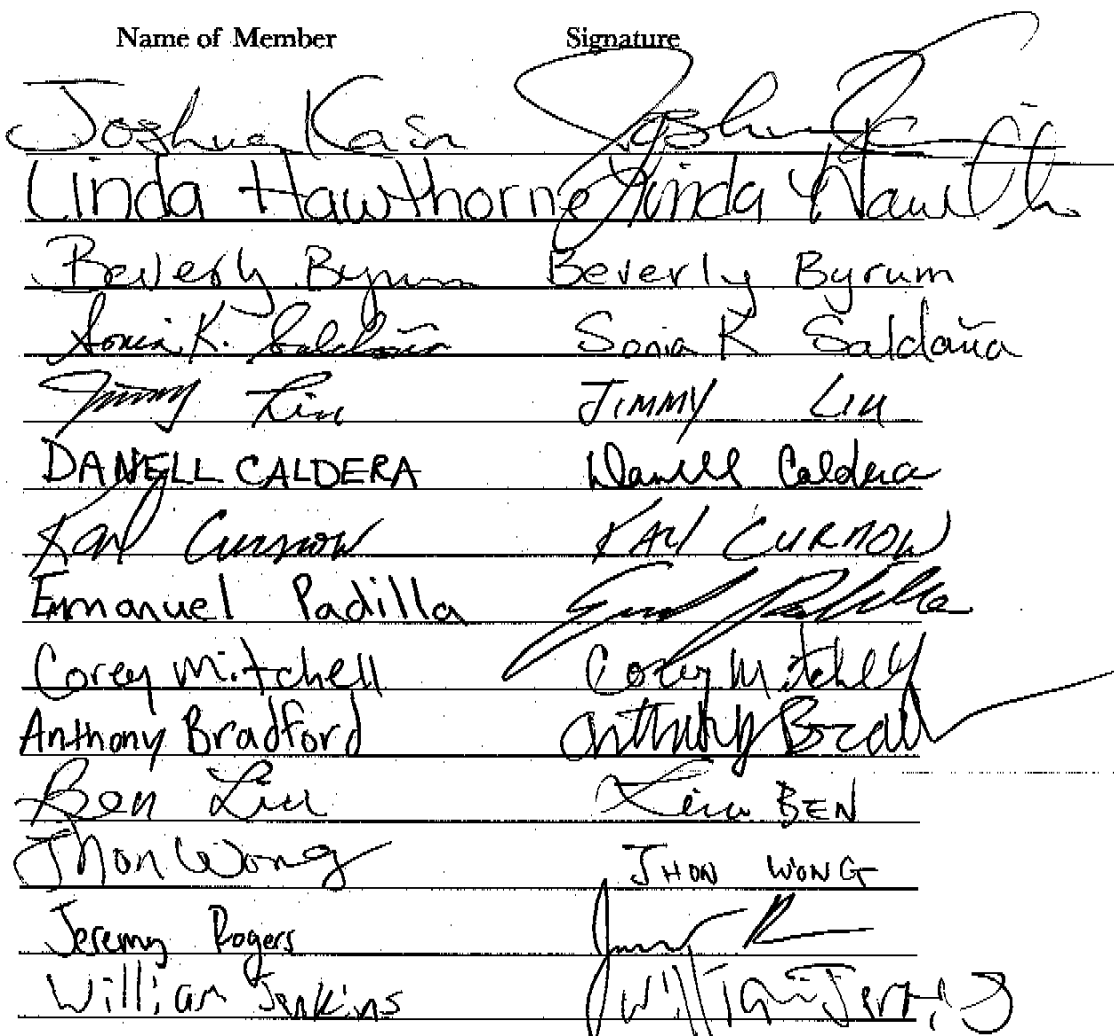 Name of Member Signature
Joshua Kain Joshua
Linda Hawthorne Linda Hawth
Beverly Byrum Beverly Byrum
Sonia K. Saldaña Sonia K Saldaña
Jimmy Liu JIMMY LIU
DANELL CALDERA Danell Caldera
Karl Curnow KARl CURNOW
Emmanuel Padilla Padilla
Corey Mitchell Corey Mitchell
Anthony Bradford Anthony Brad
Ben Liu Liu BEN
Jhon Wong JHON WONG
Jeremy Rogers
William Jenkins William Jenkins